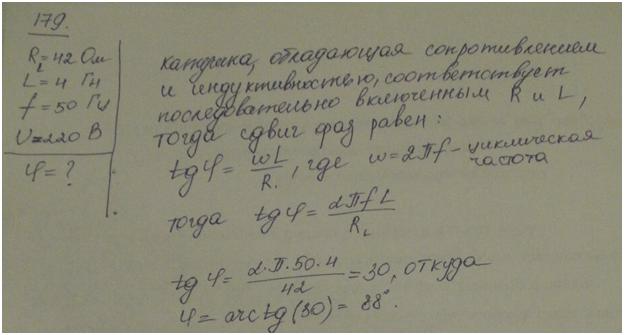 179.
R_L = 42 Ом
L = 4 Гн
f = 50 Гц
U = 220 В
φ = ?
катушка, обладающая сопротивлением
и индуктивностью, соответствует
последовательно включенным R и L,
тогда сдвиг фаз равен:
tg φ = ωL / R, где ω = 2πf – циклическая
частота
тогда tg φ = 2πfL / R_L
tg φ = 2·π·50·4 / 42 = 30, откуда
φ = arctg(30) = 88°.